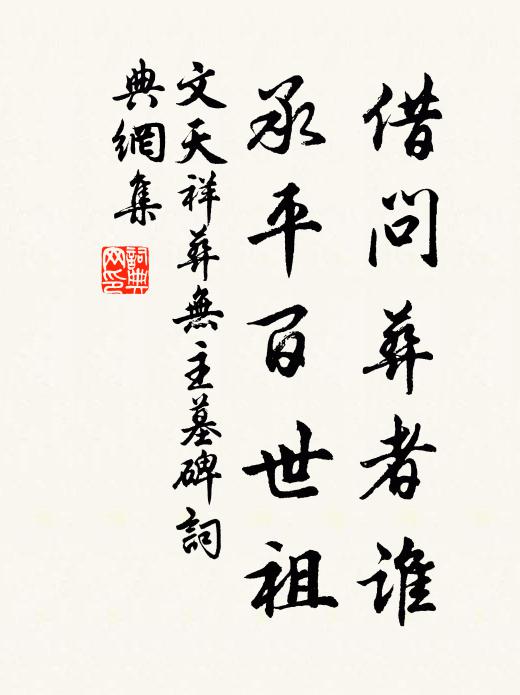 借問葬者誰
承平百世祖
文天祥葬無主墓碑詞
典網集
詞典
网印